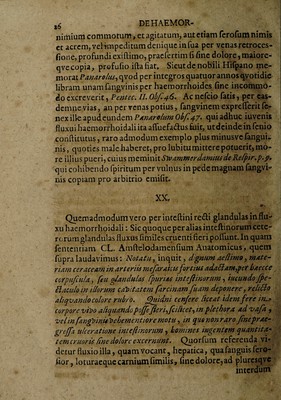 16 DE HAEMOR-
nimium commotum, et agitatum, aut etiam serosum nimis
et acrem, vel impeditum denique in sua per venas retroces-
sione, profundi existimo, praesertim si sine dolore, maiore-
qve copia, profusio ista fiat. Sicut de nobili Hispano me-
morat Panarolus, qvod per integros quatuor annos qvotidie
libram unam sangvinis per haemorrhoides sine incommo-
do excreverit, Pentec. II. Obs. 46. Ac nescio satis, per eas-
demne vias, an per venas potius, sangvinem expresserit se-
nex ille apud eundem Panarolum Obs. 47. qui adhuc iuvenis
fluxui haemorrhoidali ita assuefactus fuit, ut deinde in senio
constitutus, raro admodum exemplo plus minusve sangui-
nis, quoties male haberet, pro lubitu mittere potuerit, mo-
re illius pueri, cuius meminit Swammerdamus de Respir. p. 9.
qui cohibendo spiritum per vulnus in pede magnam sangvi-
nis copiam pro arbitrio emisit.
XX.
Quemadmodum vero per intestini recti glandulas in flu-
xu haemorrhoidali: Sic quoque per alias intestinorum cete-
rorum glandulas fluxus similes eqventi fieri possunt. In quam
sententiam CL. Amstelodamensium Anatomicus, quem
supra laudavimus: Notatu, inquit, dignum aestimo, mate-
riam ceraceam in arteriis mesaraicis fortius adactam, per haecce
corpuscula, seu glandulas spurias intestinorum, iucundo spe-
ctaculo in illorum cavitatem farcinam suam deponere, relicto
aliqvando colore rubro. Quidni censere liceat idem fere in
corpore vivo aliquando posse fieri, scilicet, in plethora ad vasa,
vel in sangvinis vehementiore motu, in quo nonraro sine prae-
gressa ulceratione intestinorum, homines ingentem quantita-
tem cruoris sine dolore excernunt. Quorsum referenda vi-
detur fluxio illa, quam vocant, hepatica, qua sanguis sero-
sior, loturaeque carnium similis, sine dolore, ad pluresqve
interdum